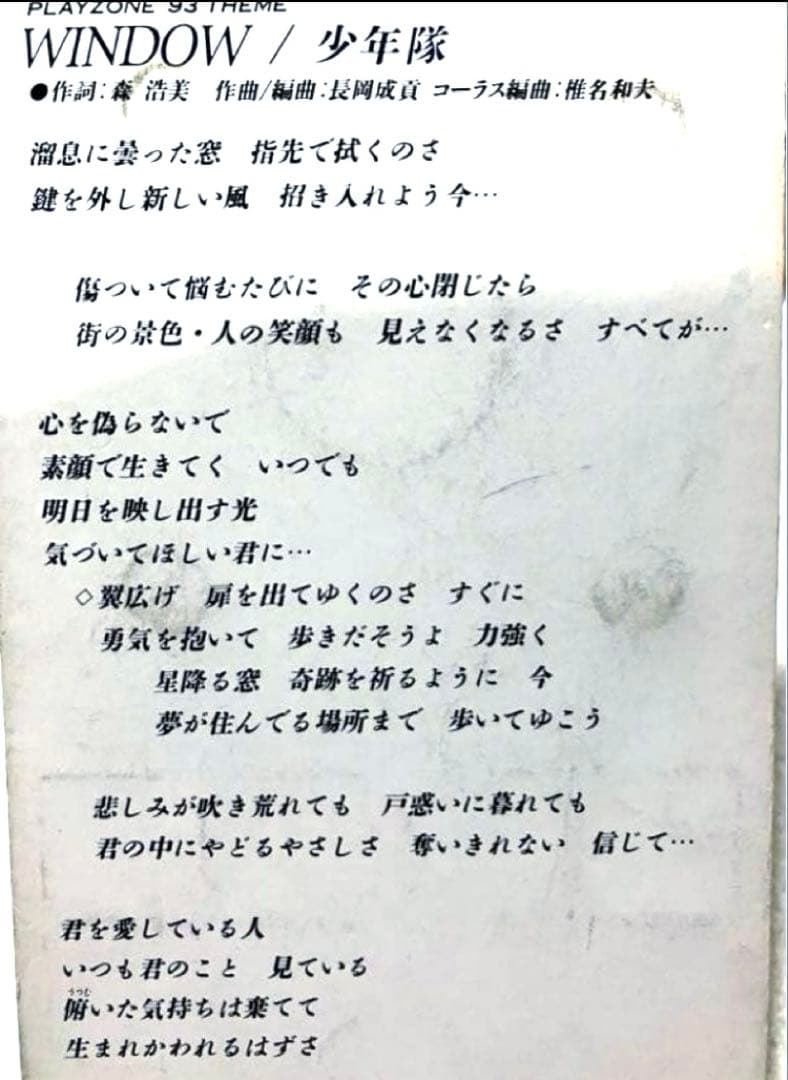 PLAYZONE '93 THEME
WINDOW / 少年隊
●作詞:森 浩美 作曲/編曲:長岡成貢 コーラス編曲:椎名和夫
溜息に曇った窓 指先で拭くのさ
鍵を外し新しい風 招き入れよう今…
傷ついて悩むたびに その心閉じたら
街の景色・人の笑顔も 見えなくなるさ すべてが…
心を偽らないで
素顔で生きてく いつでも
明日を映し出す光
気づいてほしい君に…
◇翼広げ 扉を出てゆくのさ すぐに
勇気を抱いて 歩きだそうよ 力強く
星降る窓 奇跡を祈るように 今
夢が住んでる場所まで 歩いてゆこう
悲しみが吹き荒れても 戸惑いに暮れても
君の中にやどるやさしさ 奪いきれない 信じて…
君を愛している人
いつも君のこと 見ている
俯いた気持ちは棄てて
生まれかわれるはずさ